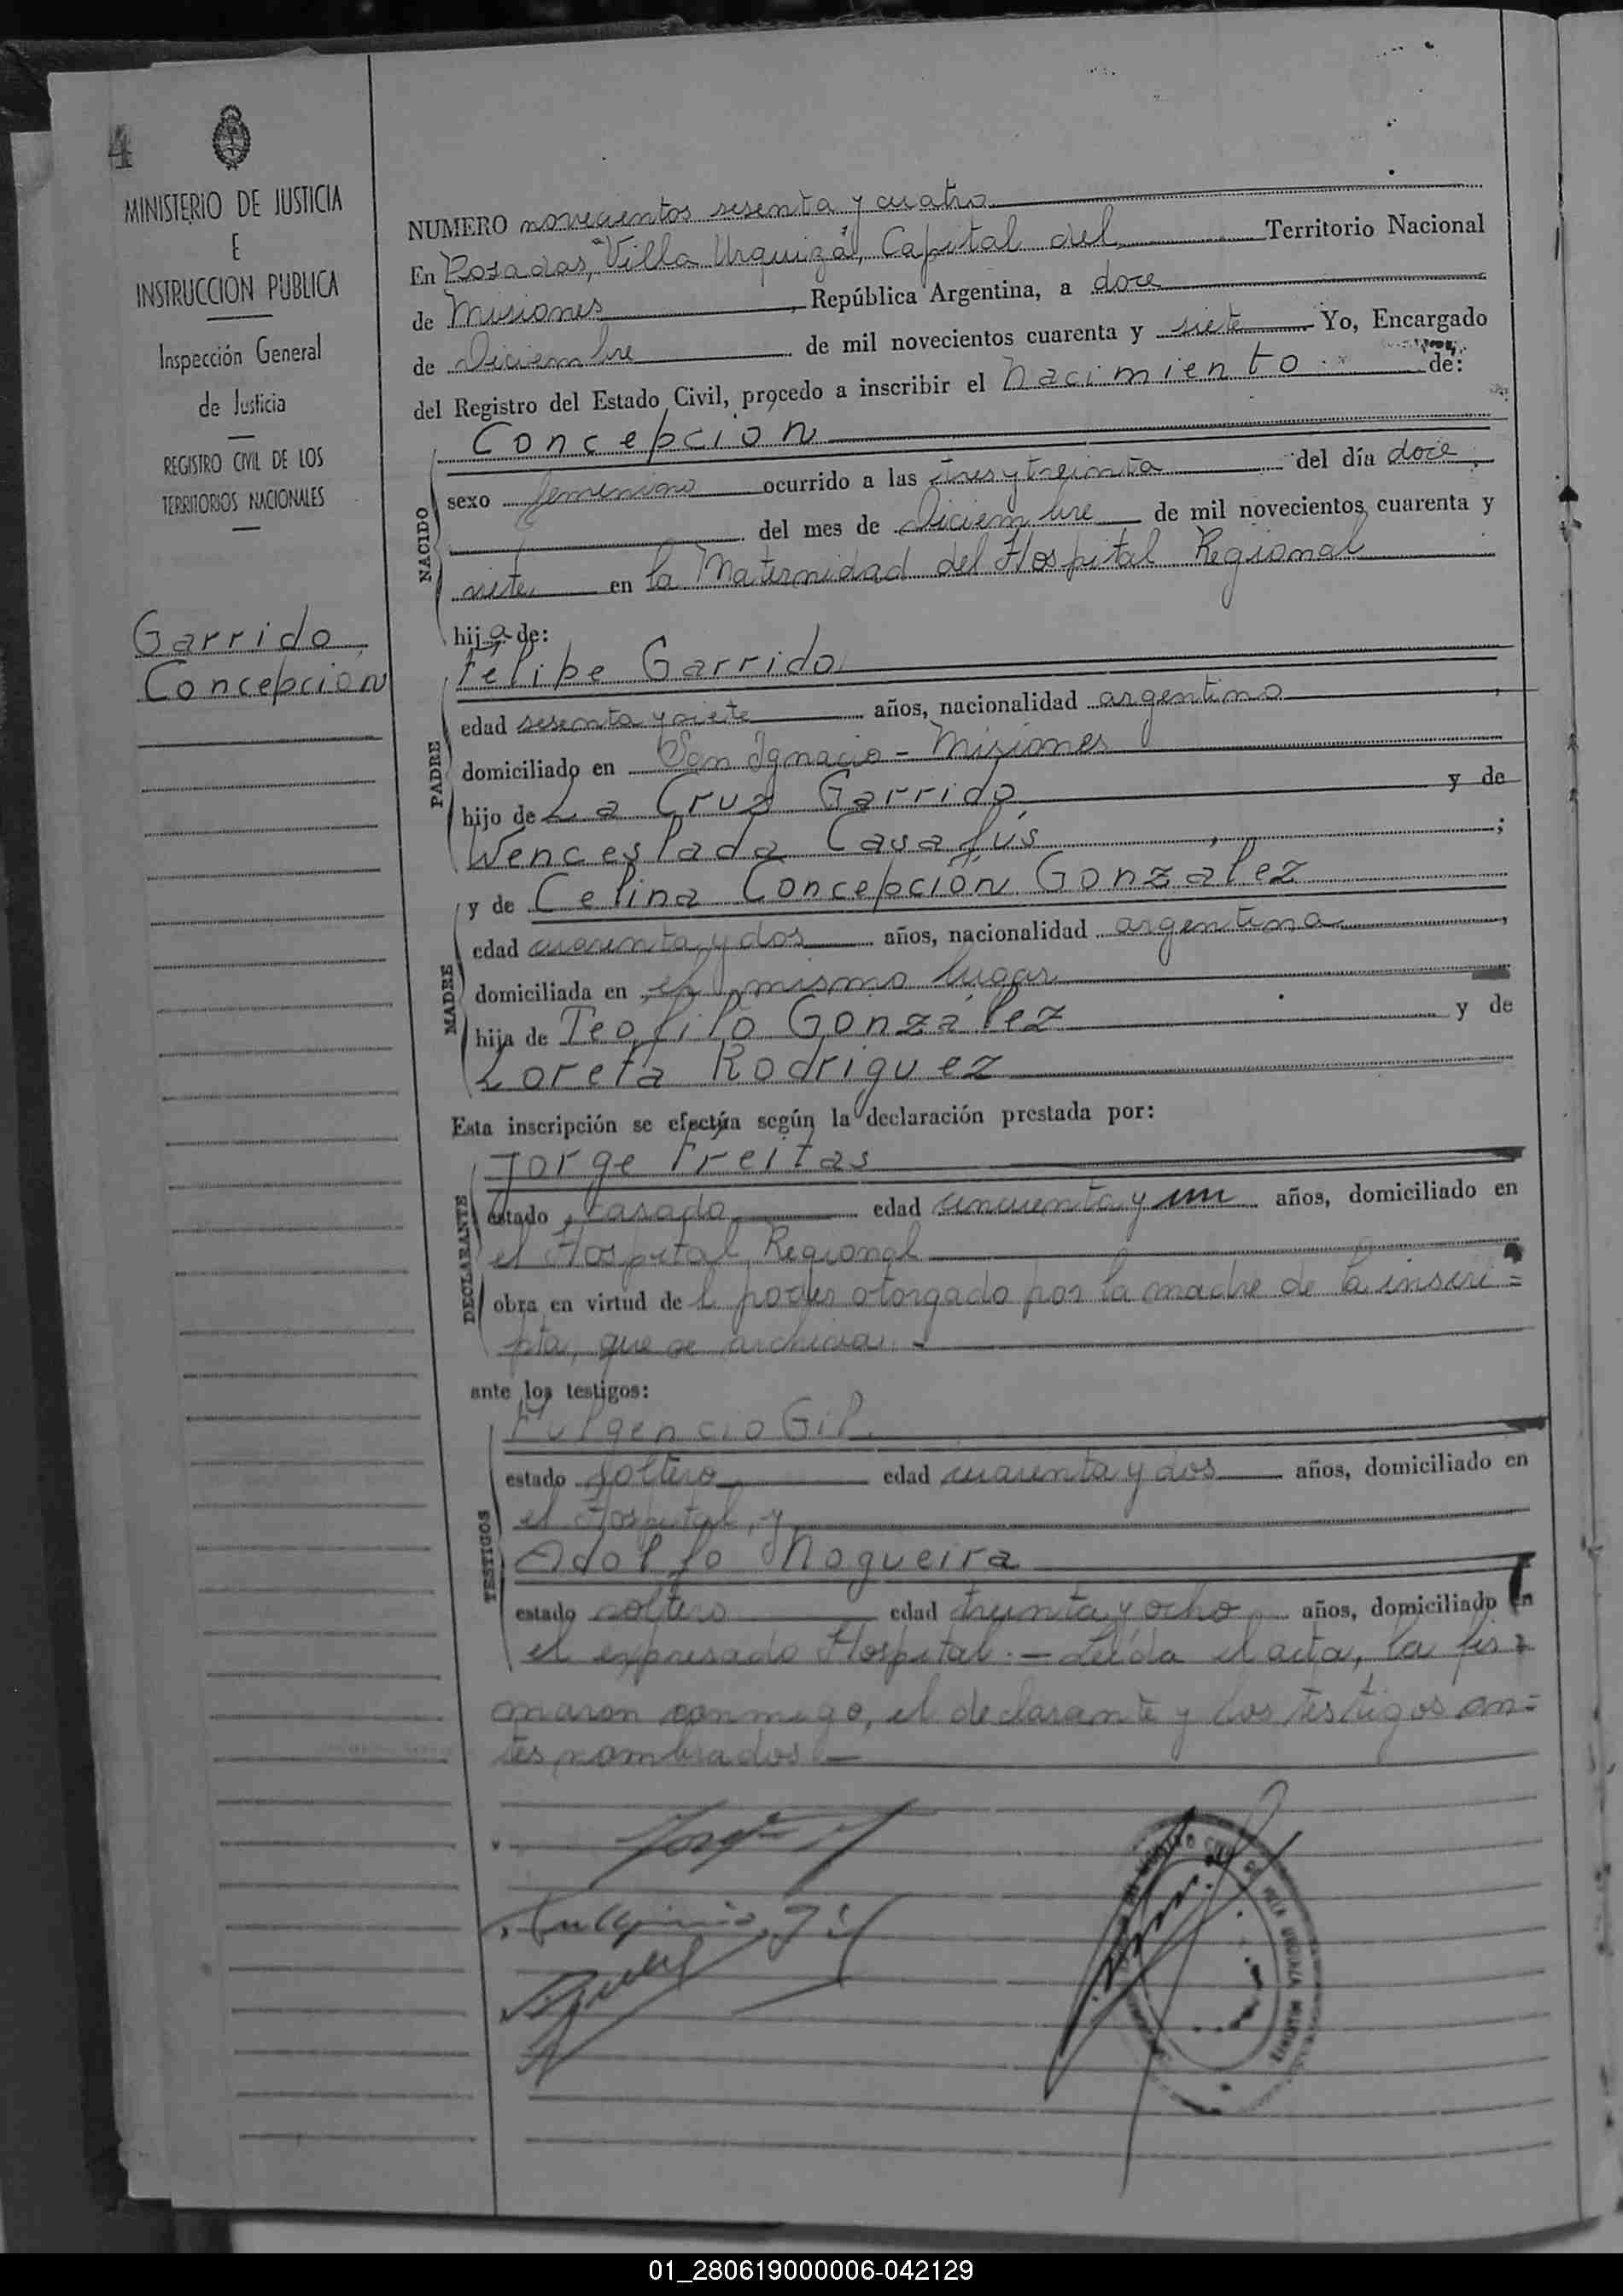 4
MINISTERIO DE JUSTICIA
E
INSTRUCCION PUBLICA
Inspección General
de Justicia
REGISTRO CIVIL DE LOS
TERRITORIOS NACIONALES
Garrido
Concepción
NUMERO novecientos sesenta y cuatro
En Posadas, "Villa Urquiza", Capital del Territorio Nacional
de Misiones, República Argentina, a doce
de Diciembre de mil novecientos cuarenta y siete Yo, Encargado
del Registro del Estado Civil, procedo a inscribir el nacimiento de:
NACIDO
Concepción
sexo femenino ocurrido a las tres y treinta del día doce
del mes de Diciembre de mil novecientos cuarenta y
siete en la Maternidad del Hospital Regional
hija de:
PADRE
Felipe Garrido
edad sesenta y siete años, nacionalidad argentino,
domiciliado en San Ignacio - Misiones
hijo de La Cruz Garrido y de
Wenceslada Casafús ;
MADRE
y de Celina Concepción González
edad cuarenta y dos años, nacionalidad argentina,
domiciliada en el mismo lugar
hija de Teofilo González y de
Loreta Rodriguez
Esta inscripción se efectúa según la declaración prestada por:
DECLARANTE
Jorge Freitas
estado casado edad cincuenta y un años, domiciliado en
el Hospital Regional
obra en virtud del poder otorgado por la madre de la inscri=
pta, que se archiva.-
ante los testigos:
TESTIGOS
Fulgencio Gil
estado soltero edad cuarenta y dos años, domiciliado en
el Hospital, y
Adolfo Nogueira
estado soltero edad treinta y ocho años, domiciliado en
el expresado Hospital.- Leída el acta, la fir=
maron conmigo, el declarante y los testigos an=
tes nombrados.-
Fulgencio Gil
01_280619000006-042129